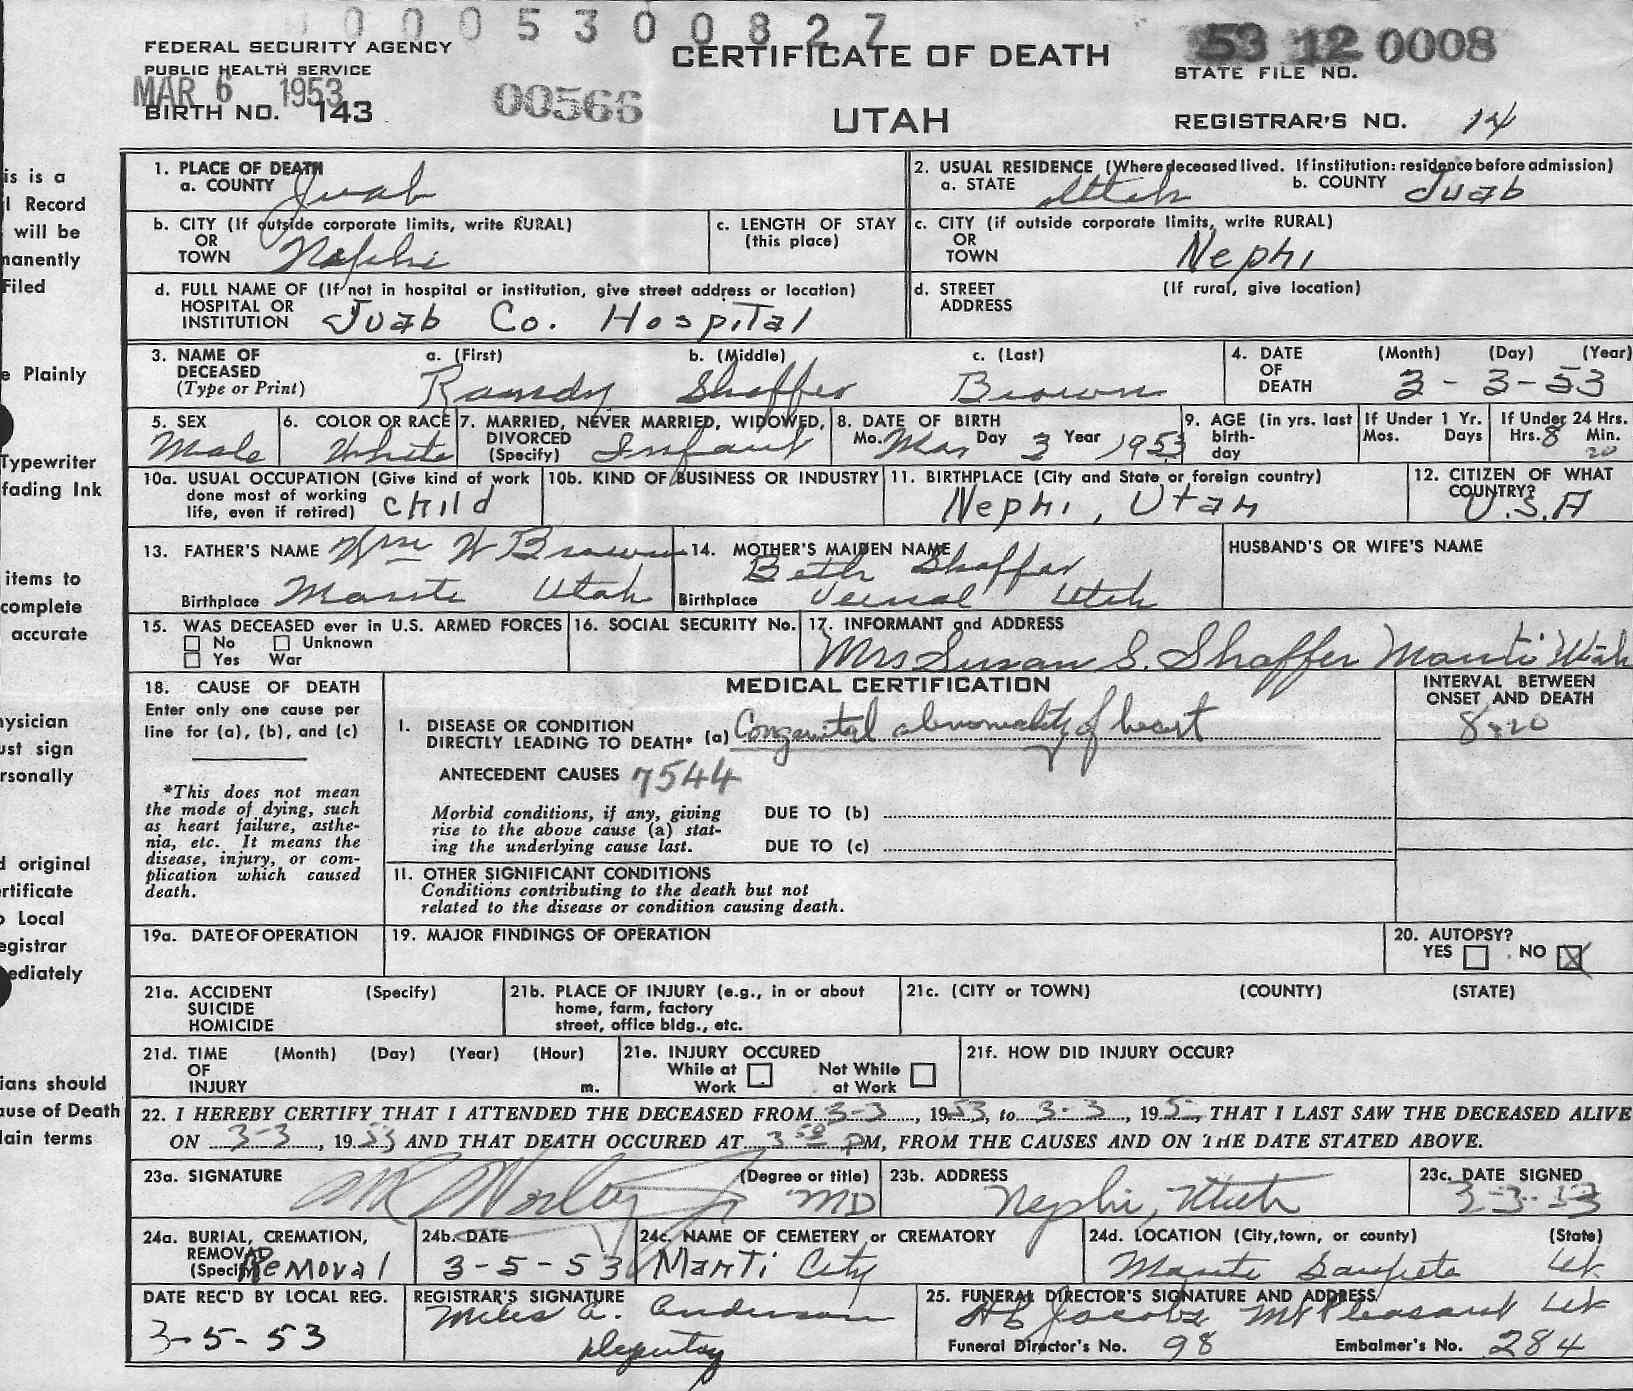 0 0 0 5 3 0 0 8 2 7
FEDERAL SECURITY AGENCY
PUBLIC HEALTH SERVICE
MAR 6 1953
BIRTH NO. 143
00566
CERTIFICATE OF DEATH
UTAH
53 12 0008
STATE FILE NO.
REGISTRAR'S NO. 14
is is a
l Record
will be
manently
Filed
e Plainly
Typewriter
fading Ink
items to
complete
accurate
hysician
ust sign
rsonally
d original
ertificate
o Local
egistrar
mediately
ians should
ause of Death
lain terms
1. PLACE OF DEATH
a. COUNTY Juab
2. USUAL RESIDENCE (Where deceased lived. If institution: residence before admission)
a. STATE Utah b. COUNTY Juab
b. CITY (If outside corporate limits, write RURAL)
OR
TOWN Nephi
c. LENGTH OF STAY
(this place)
c. CITY (if outside corporate limits, write RURAL)
OR
TOWN Nephi
d. FULL NAME OF (If not in hospital or institution, give street address or location)
HOSPITAL OR
INSTITUTION Juab Co. Hospital
d. STREET (If rural, give location)
ADDRESS
3. NAME OF DECEASED
(Type or Print)
a. (First) b. (Middle) c. (Last)
Randy Shaffer Brown
4. DATE OF DEATH
(Month) (Day) (Year)
3 - 3 - 53
5. SEX
Male
6. COLOR OR RACE
White
7. MARRIED, NEVER MARRIED, WIDOWED,
DIVORCED
(Specify) Infant
8. DATE OF BIRTH
Mo. Mar Day 3 Year 1953
9. AGE (in yrs. last
birth-
day
If Under 1 Yr.
Mos. Days
If Under 24 Hrs.
Hrs. 8 Min. 20
10a. USUAL OCCUPATION (Give kind of work
done most of working
life, even if retired) child
10b. KIND OF BUSINESS OR INDUSTRY
11. BIRTHPLACE (City and State or foreign country)
Nephi, Utah
12. CITIZEN OF WHAT
COUNTRY?
U.S.A
13. FATHER'S NAME Wm W Brown
Birthplace Manti Utah
14. MOTHER'S MAIDEN NAME
Beth Shaffer
Birthplace Vernal Utah
HUSBAND'S OR WIFE'S NAME
15. WAS DECEASED ever in U.S. ARMED FORCES
No Unknown
Yes War
16. SOCIAL SECURITY No.
17. INFORMANT and ADDRESS
Mrs Susan S. Shaffer Manti Utah
18. CAUSE OF DEATH
Enter only one cause per
line for (a), (b), and (c)
*This does not mean
the mode of dying, such
as heart failure, asthe-
nia, etc. It means the
disease, injury, or com-
plication which caused
death.
MEDICAL CERTIFICATION
INTERVAL BETWEEN
ONSET AND DEATH
I. DISEASE OR CONDITION
DIRECTLY LEADING TO DEATH* (a) Congenital abnormality of heart
8:20
ANTECEDENT CAUSES 7544
Morbid conditions, if any, giving
rise to the above cause (a) stat-
ing the underlying cause last.
DUE TO (b)
DUE TO (c)
11. OTHER SIGNIFICANT CONDITIONS
Conditions contributing to the death but not
related to the disease or condition causing death.
19a. DATE OF OPERATION
19. MAJOR FINDINGS OF OPERATION
20. AUTOPSY?
YES NO X
21a. ACCIDENT (Specify)
SUICIDE
HOMICIDE
21b. PLACE OF INJURY (e.g., in or about
home, farm, factory
street, office bldg., etc.
21c. (CITY or TOWN) (COUNTY) (STATE)
21d. TIME (Month) (Day) (Year) (Hour)
OF
INJURY m.
21e. INJURY OCCURED
While at Work Not While at Work
21f. HOW DID INJURY OCCUR?
22. I HEREBY CERTIFY THAT I ATTENDED THE DECEASED FROM 3-3, 1953, to 3-3, 195, THAT I LAST SAW THE DECEASED ALIVE
ON 3-3, 1953 AND THAT DEATH OCCURED AT 3 50 PM, FROM THE CAUSES AND ON THE DATE STATED ABOVE.
23a. SIGNATURE (Degree or title)
MD
23b. ADDRESS
Nephi, Utah
23c. DATE SIGNED
3-3-53
24a. BURIAL, CREMATION,
REMOVAL
(Specify) Removal
24b. DATE
3-5-53
24c. NAME OF CEMETERY or CREMATORY
Manti City
24d. LOCATION (City, town, or county) (State)
Manti Sanpete Ut
DATE REC'D BY LOCAL REG.
3-5-53
REGISTRAR'S SIGNATURE
Miles A. Anderson
Deputy
25. FUNERAL DIRECTOR'S SIGNATURE AND ADDRESS
Jacobs Mt Pleasant Ut
Funeral Director's No. 98 Embalmer's No. 284